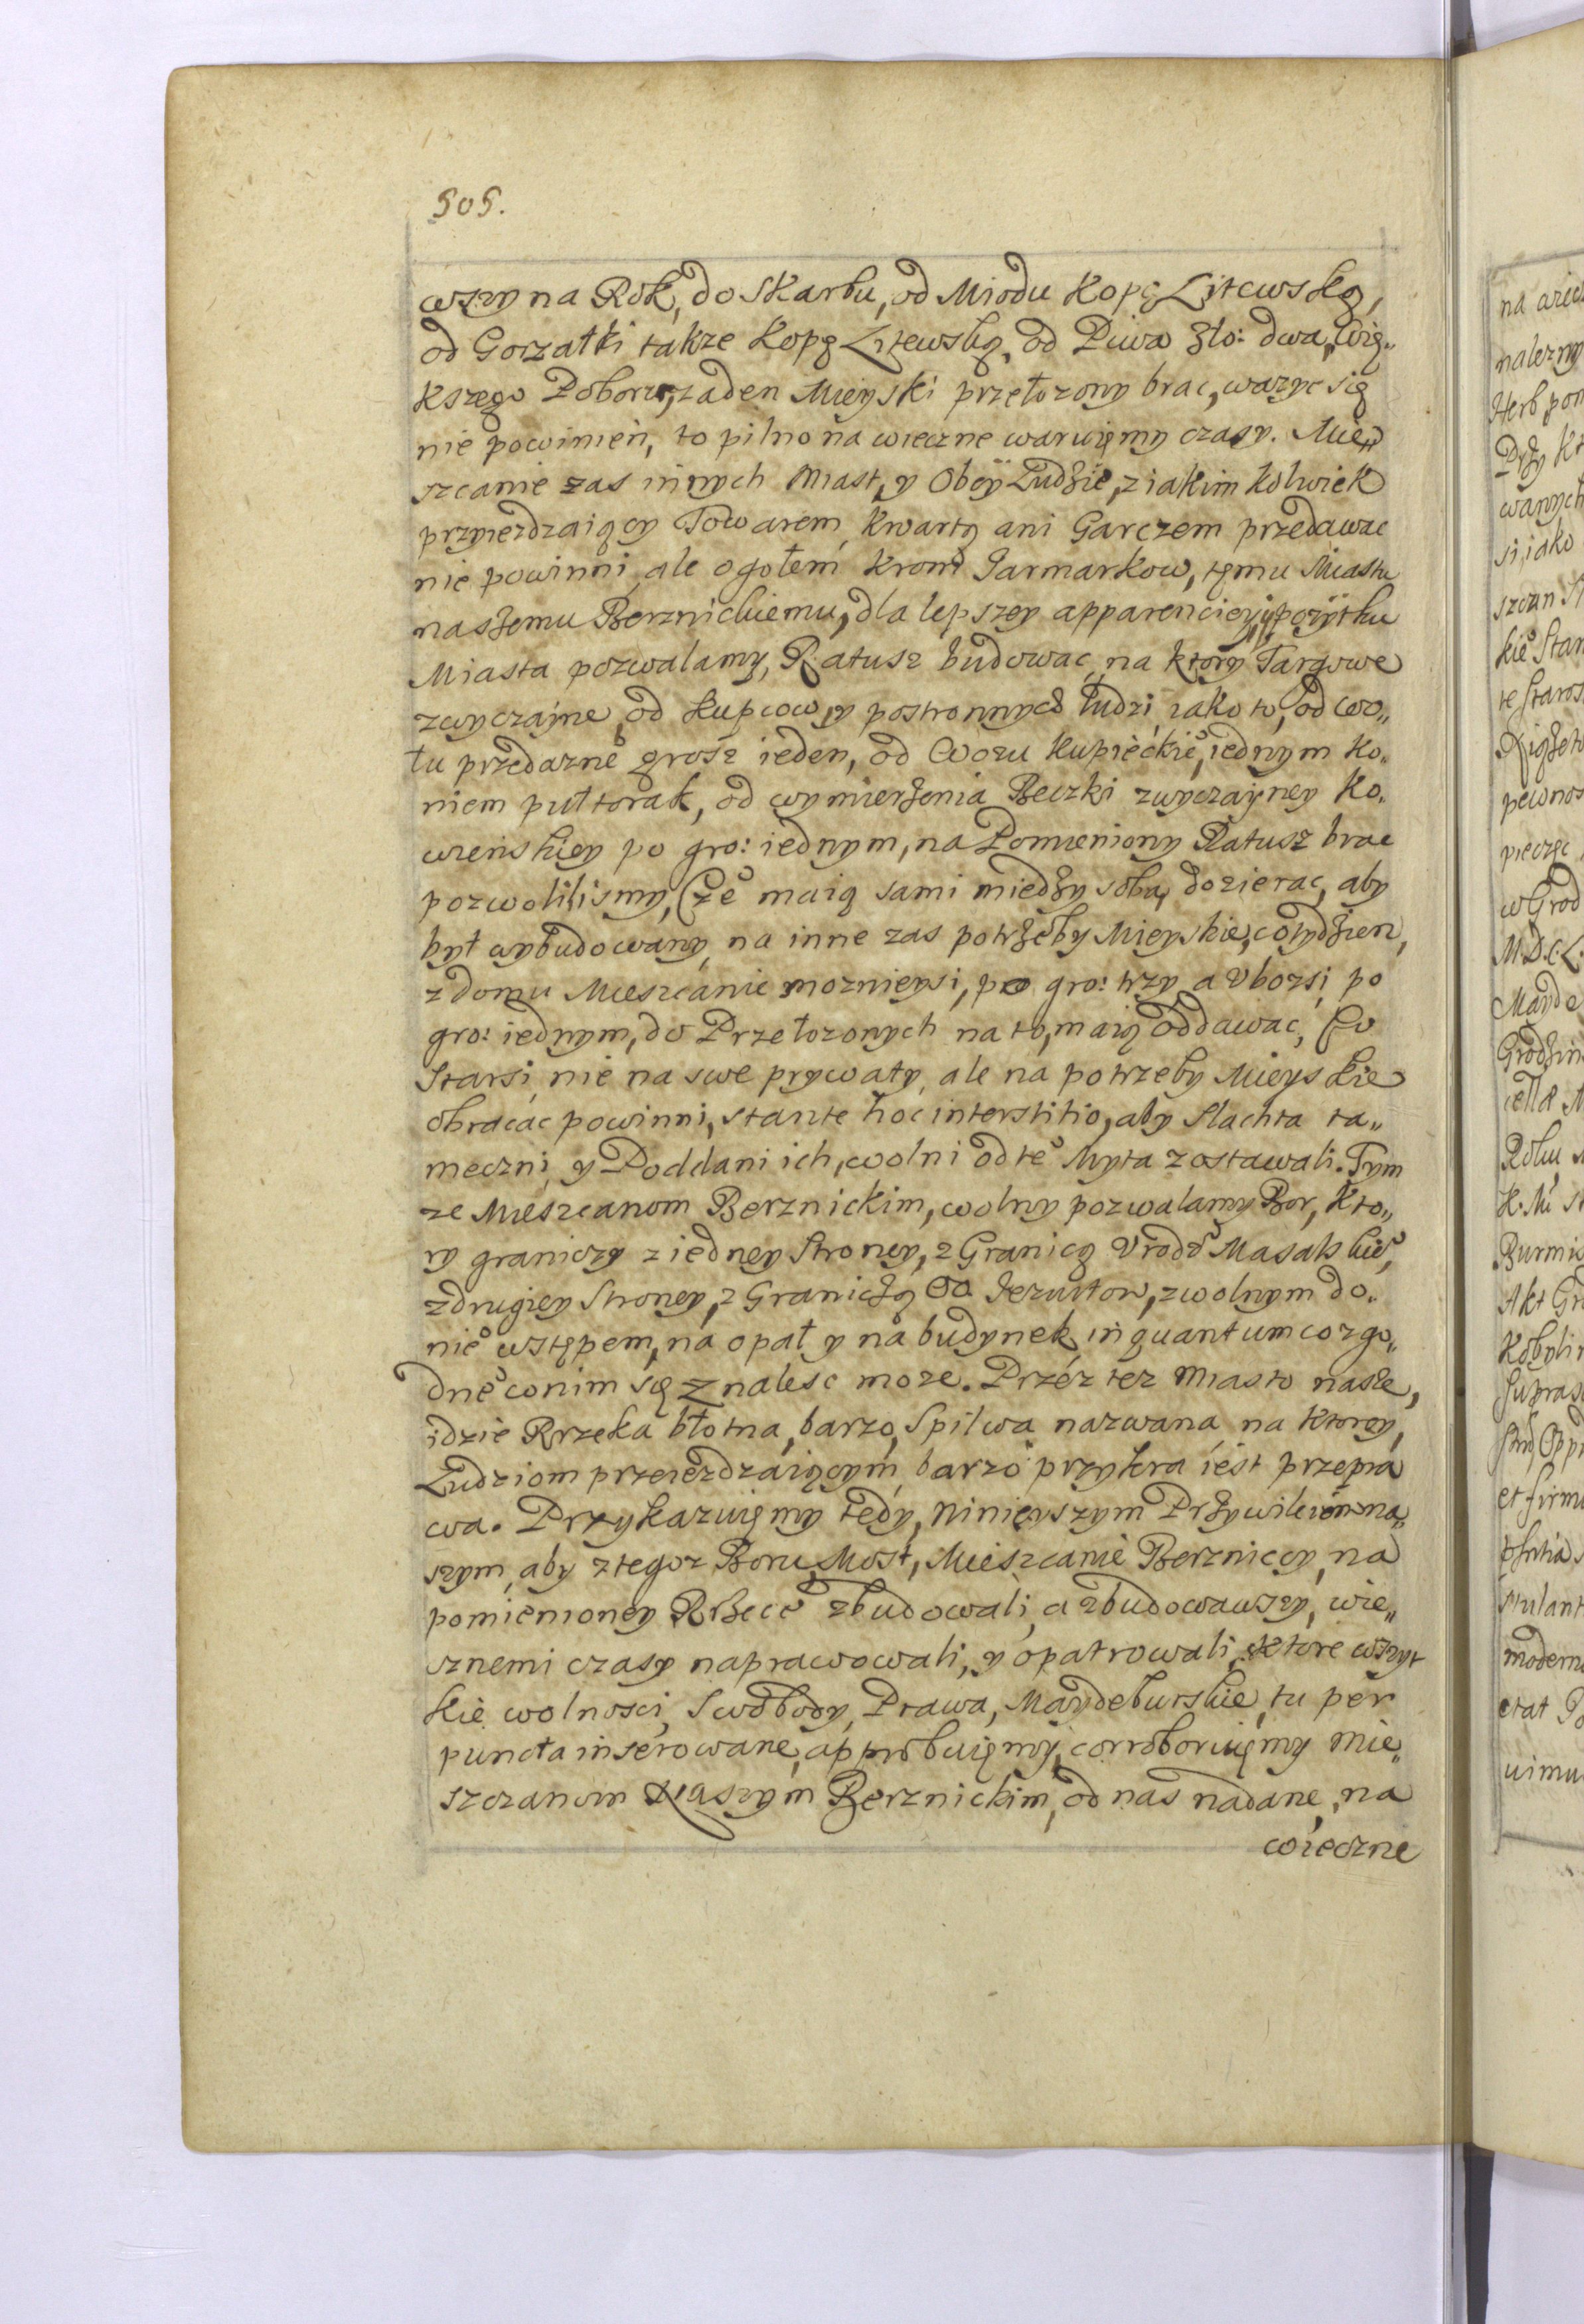 505.
wszy na Rok, do Skarbu, od Miodu Kopę Litewską,
od Gorzałki takze Kopę Litewską, od Piwa Zło: dwa, Wię„
kszego Poboru, zaden Mieyski przełozony brac, wazyc się
nie powinien, to pilno na wieczne waruięmy czasy. Mie„
szcanie zas innych Miast, y Obcy Ludzie, z iakim kolwiek
przyiezdzaiący Towarem, kwartą ani Garczem przedawac
nie powinni, ale ogołem krom Jarmarkow, tęmu Miastu
naszemu Berznickiemu, dla lepszey apparenciey, y pozytku
Miasta pozwalamy, Ratusz budowac, na ktory Targowe
zwyczayne, od Kupcow, y postronnych ludzi, iako to, od wo„
łu przedazneº grosz ieden, od Wozu Kupieckieº, iednym ko„
niem pułtorak, od wymierzenia Beczki zwyczayney Ko„
wienskiey po gro: iednym, na Pomieniony Ratusz brac
pozwolilismy, Czeº maią sami miedzy sobą, dozierac, aby
był wybudowany, na inne zas potrzeby Mieyskie, co tydzien,
z domu Mieszcanie moznieysi, po gro: trzy, a Vbozsi, po
gro: iednym, do Przełozonych na to, maią oddawac, Co
Starsi, nie na swe prywaty, ale na potrzeby Mieyskie
obracac powinni, stante hoc interstitio, aby Slachta ta„
meczni, y Poddani ich, wolni od teº Myta zostawali. Tym
ze Mieszcanom Berznickim, wolny pozwalamy Bor, kto„
ry graniczy z iedney Stroney, z Granicą Vrodzº Masalskieº,
z drugiey Stroney, z Graniczą OO. Jezuitow, z wolnym do„
nieº wstępem, na opał y na budynek, in quantum co zgo„
dneº w nim się Znalesc moze. Przez tez Miasto nasze,
idzie Rzeka błotna, barzo, Spilwa nazwana, na ktorey,
Ludziom przeiezdzaiącym, barzo przykra iest przepra
wa. Przykazuięmy tedy, Ninieyszym Przywileiem na„
szym, aby z tegoz Boru, Most, Mieszcanie Berzniccy, na
pomienioney Rzece zbudowali, a zbudowawszy, wie„
cznemi czasy naprawowali, y opatrowali, Ktore wszyt
kie wolnosci, Swobody, Prawa, Maydeburskie, tu per
puncta inserowane, approbuięmy, corroboruięmy Mie„
szczanom Naszym Berznickim, od nas nadane, na
wieczne
na wiecz
nalezny
Herb pom
Przy Kt
wanych
si, iako
kieº Star
te Staros
pewnos
w Grod
M.D.C.L.
Mayde
Grodzin
cella
Roku
Burmis
Akt Gr
Kobylin
et firm
stulant
moderno
etat